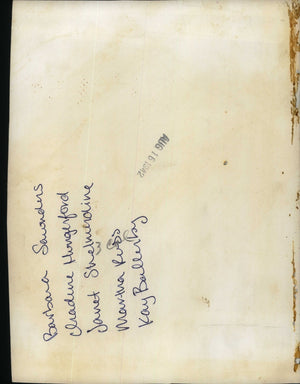 Barbara Saunders
Claudine Hungerford
Janet Shelmerdine
Martha Russ
Kay
AUG 16 1942